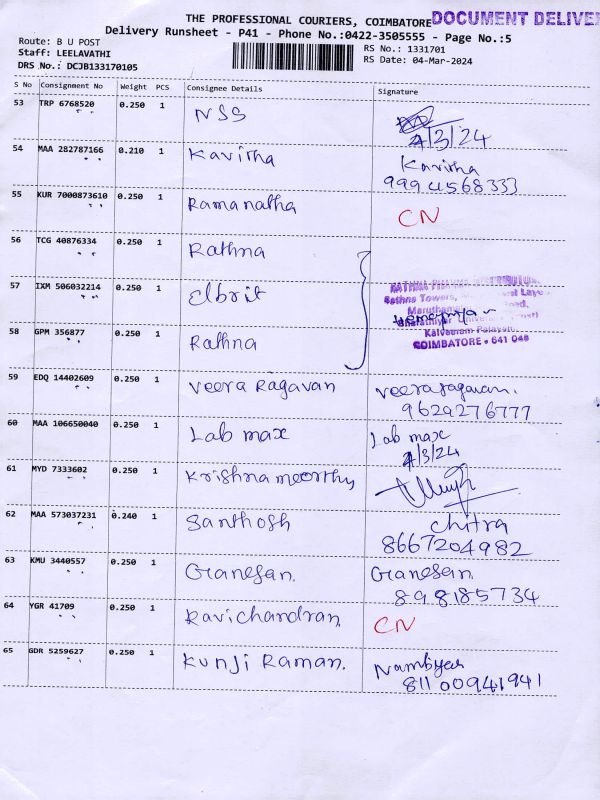 THE PROFESSIONAL COURIERS, COIMBATORE DOCUMENT DELIVER
Delivery Runsheet - P41 - Phone No.:0422-3505555 - Page No.:5
Route: B U POST
RS No.: 1331701
Staff: LEELAVATHI
RS Date: 04-Mar-2024
DRS No.: DCJB133170105
S No Consignment No Weight PCS Consignee Details Signature
53 TRP 6768520 0.250 1 NSS
4/3/24
54 MAA 282787166 0.210 1 Kavitha Kavitha
9994568333
55 KUR 7000873610 0.250 1 Ramanatha CN
56 TCG 40876334 0.250 1 Rathna
57 IXM 506032214 0.250 1 Elbrit
Rathna Towers,
58 GPM 356877 0.250 1 Rathna
COIMBATORE - 641 046
59 EDQ 14402609 0.250 1 Veera Ragavan Veeraragavan.
9629276777
60 MAA 106650040 0.250 1 Lab max Lab max
4/3/24
61 MYD 7333602 0.250 1 Krishna moorthy
62 MAA 573037231 0.240 1 Santhosh Chitra
8667204982
63 KMU 3440557 0.250 1 Ganesan. Ganesan.
898185734
64 YGR 41709 0.250 1 Ravichandran, CN
65 GDR 5259627 0.250 1 Kunji Raman. Nambiyar
81100941941